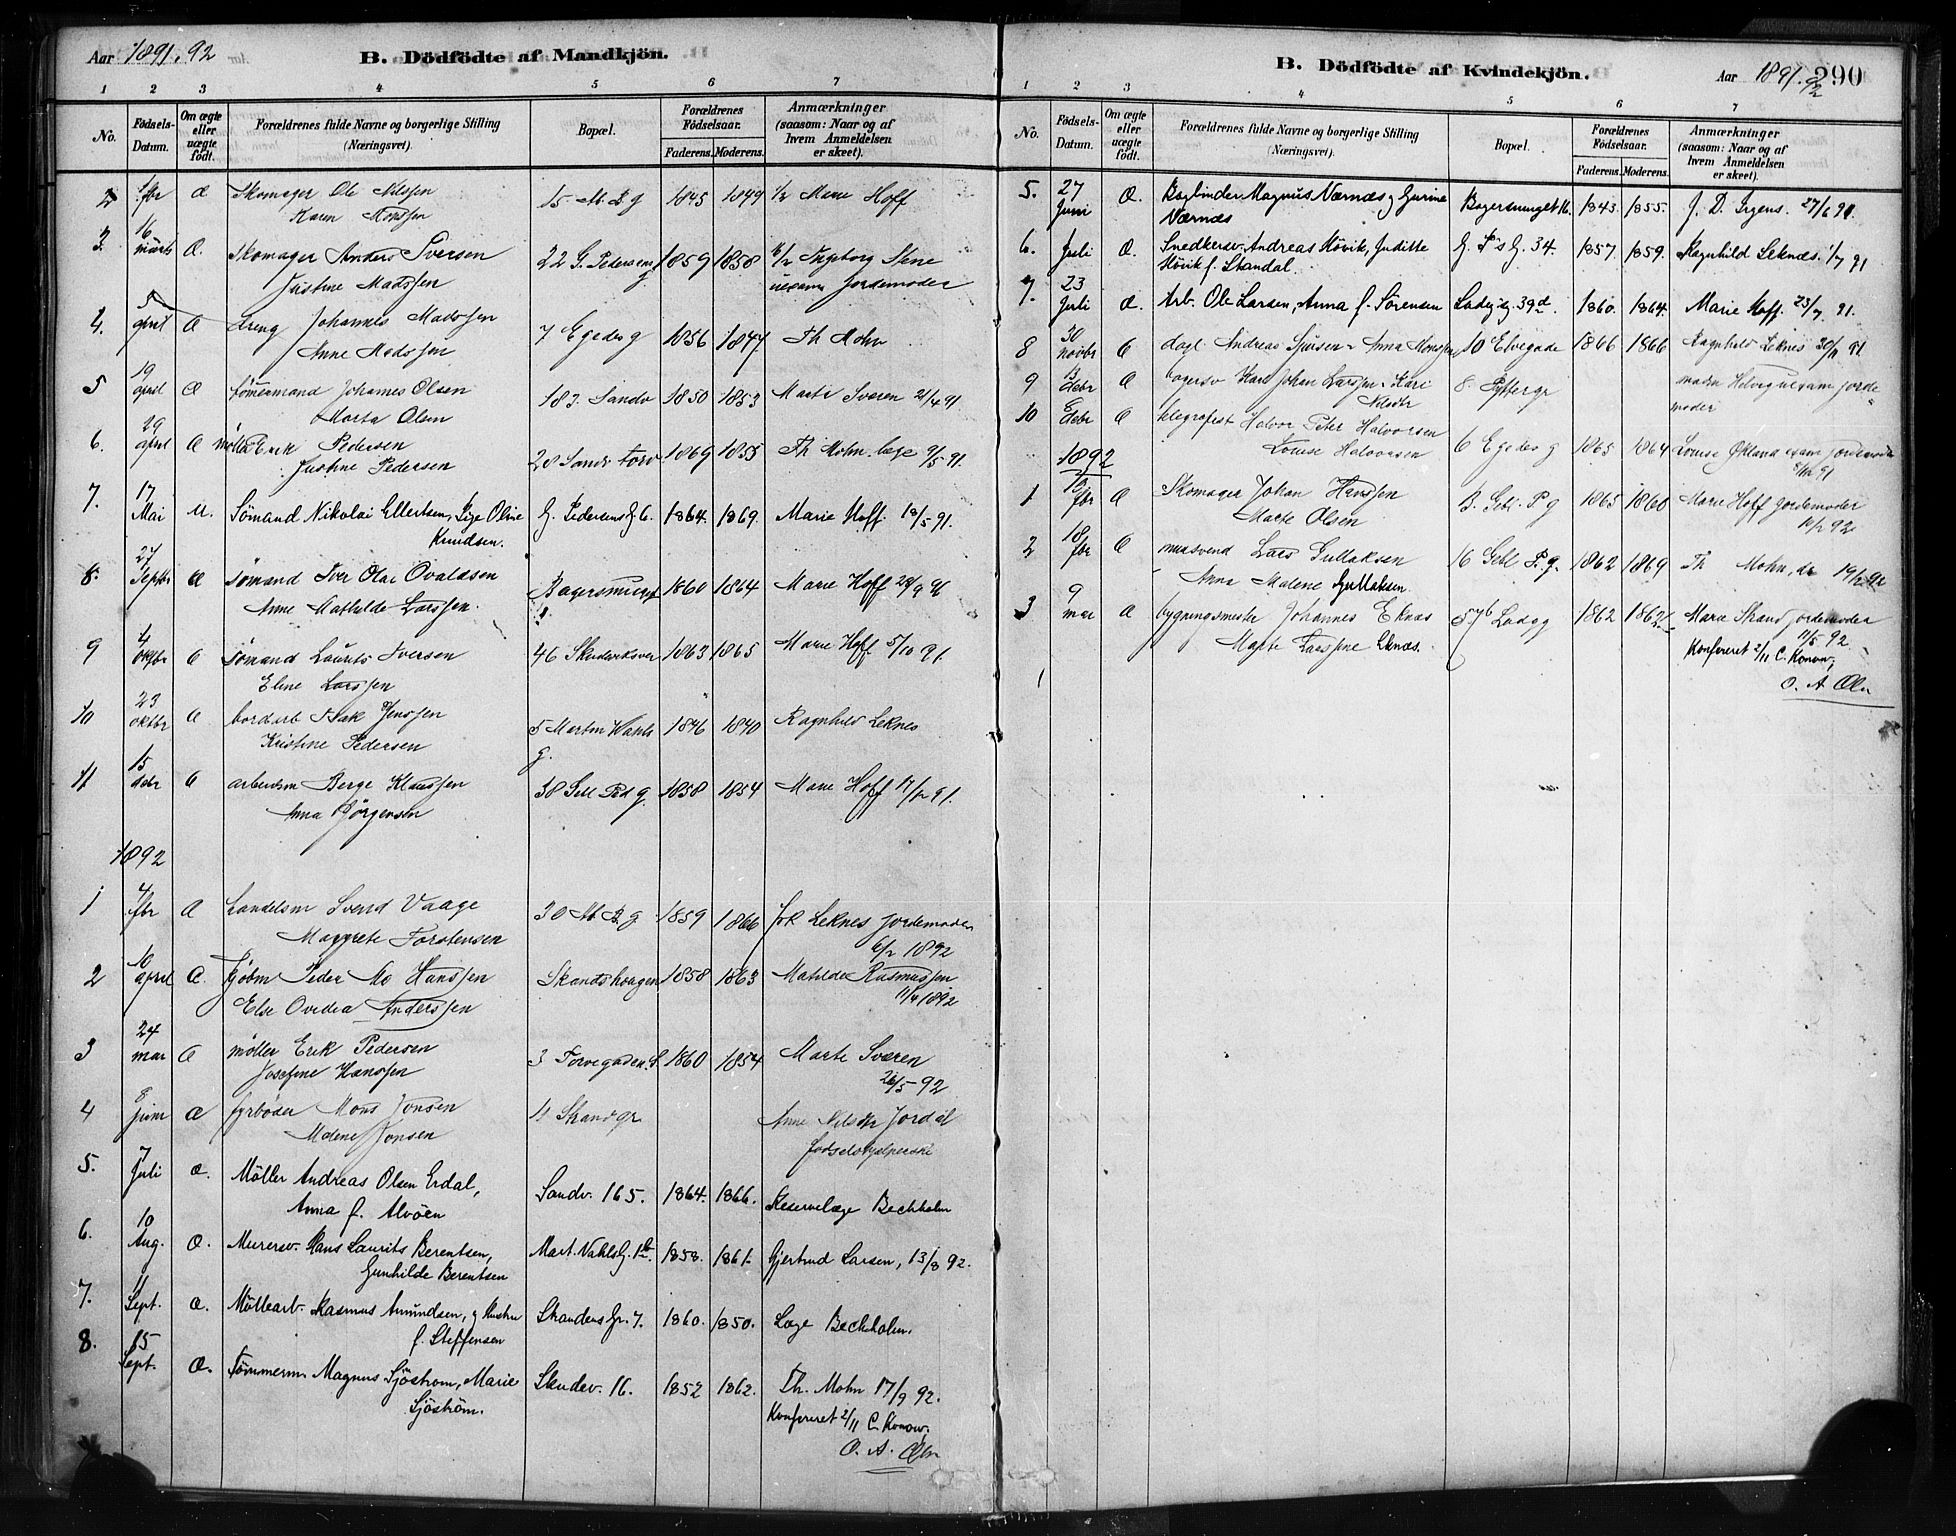 Aar 1891. 92
B. Dödfödte af Mandkjön.
1 2 3 4 5 6 7
No. Födsels-Datum. Om ægte eller uægte födt. Forældrenes fulde Navne og borgerlige Stilling (Næringsvei). Bopæl. Forældrenes Födselsaar. Faderens. Moderens. Anmærkninger (saasom: Naar og af hvem Anmeldelsen er skeet).
2 1 fbr æ Skomager Ole Nilssen 15 M. B g 1845 1849 1/2 Marie Hoff
Karen Monssen
3. 16 marts Æ. Skomager Anders Iversen 22 G. Pedersens g 1859 1858 Ingeborg Stene
Justine Madssen uexam Jordemoder
4. 5 april Æ dreng Johannes Madssen 7 Egedes g 1856 1847 Th Mohn
Anne Madssen
5 19 april Æ tømermand Johannes Olsen 183. Sandv 1850 1853 Marte Sværen 21/4 91
Marta Olsen
6. 29 april Æ møller Erik Pedersen 28 Sandv Torv 1869 1855 Th Mohn. læge 9/5 91.
Justine Pedersen
7. 17 Mai U. Sömand Nikolai Ellertsen, Pige Oline G. Pedersens G. 6. 1864. 1869. Marie Hoff. 18/5 91.
Knudsen.
8. 27 Septbr Æ Sømand Iver Olai Ovaldsen Bagersmuget 1860 1864 Marie Hoff 28/9 91
Anne Mathilde Larssen.
9 4 oktbr Æ Sømand Laurits Iversen 46 Skudeviksvei 1863 1865 Marie Hoff 5/10 91.
Eline Larssen
10 23 oktbr Æ bordarb Isak Jenssen 5 Martin Vahls g. 1846 1840 Ragnhild Leknes
Kristine Pedersen
11 15 debr Æ arbeidsm Berge Klaussen 38 Gell Ped g. 1858 1854 Marie Hoff 17/12 91.
Anna Jørgensen
1892
1 4 fbr Æ handelsm Svend Vaage 30 M B g 1859 1866 frk Leknes jordemoder
Maggrete Torstensen 6/2 1892
2 10 april Æ. Kjøbm Peder Mo Hanssen Skandshaugen 1858 1863 Matilde Rasmussen
Else Ovidea Anderssen 11/4 1892
3 24 mai Æ møller Erik Pedersen 3 Torvegaden. S 1860 1854 Marte Sværen
Josefine Hanssen 26/5 92
4 8 juni æ fyrbøder Mons Jonsen 4 Skandgr Anne Nilsen Jordal
Malene Jonsen fødselshjelperske
5. 7 Juli æ. Möller Andreas Olsen Erdal, Sandv. 165. 1864. 1866. Reservelæge Bechholm
Anna f. Alvöen
6. 10 Aug. Æ. Murersv. Hans Laurits Berentsen, Mart. Vahls G. 1b. 1858. 1861. Gjertrud Larsen, 13/8 92.
Gunhilde Berentsen
7. 11 Sept. æ. Möllearb. Rasmus Amundsen, og Hustru Skandens Gr. 7. 1860. 1850. Læge Bechholm.
f. Steffensen
8. 15 Sept. Æ. Tömmerm. Magnus Sjöstrom, Marie Skudev. 16. 1852 1862. Th. Mohn 17/9 92.
Sjöström. Konfereret 2/11 C. Konow.
O. A. Øln
B. Dödfödte af Kvindekjön.
Aar 1891. 92 290
1 2 3 4 5 6 7
No. Födsels-Datum. Om ægte eller uægte födt. Forældrenes fulde Navne og borgerlige Stilling (Næringsvei). Bopæl. Forældrenes Födselsaar. Faderens. Moderens. Anmærkninger (saasom: Naar og af hvem Anmeldelsen er skeet).
5. 27 Juni Æ. Bogbinder Magnus Værnæs og Gurine Bagersmuget 16. 1843. 1855. J. D. Irgens. 27/6 91.
Værnæs
6. Juli Æ. Snedkersv. Andreas Hövik, Juditte G. P's G. 34. 1857. 1859. Ragnhild Leknæs. 1/7 91
Hövik f. Standal.
7. 23 Juli æ. Arb. Ole Larsen, Anna f. Sörensen Ladegg. 39d. 1860. 1864. Marie Hoff. 23/7 91.
8 30 novbr Æ dagl Andreas Anna Monssen 10 Elvegade 1866 1866 Ragnhild Leknes 30/11 91
9 13 debr Æ bagersv Karl Johan Larssen. Kari 8. Pyttergr madm Helvig uexam jorde
moder
10 debr Æ telegrafist Halvor Peter Halvorsen 6 Egedes g 1865 1864 Louise Økland exam jordemoder
Louise Halvorsen 91
1892
1 10 fbr Æ Skomager Johan Hanssen B. Gebl. P g 1865 1860 Marie Hoff jordemoder
Marte Olsen 92
2 18 fbr Æ mursvend Lars Gullaksen 16 Gebl P. g. 1862 1869 Th Mohn, dr 19/2 92
Anna Malene Gullaksen.
3 9 mai Æ bygningsmester Johannes Eknæs 57b Ladeg 1862 1862. Marie Strand jordemoder
Marte Larssine Eknæs. 11/5 92.
Konfereret 2/11 C. Konow.
O. A Øln